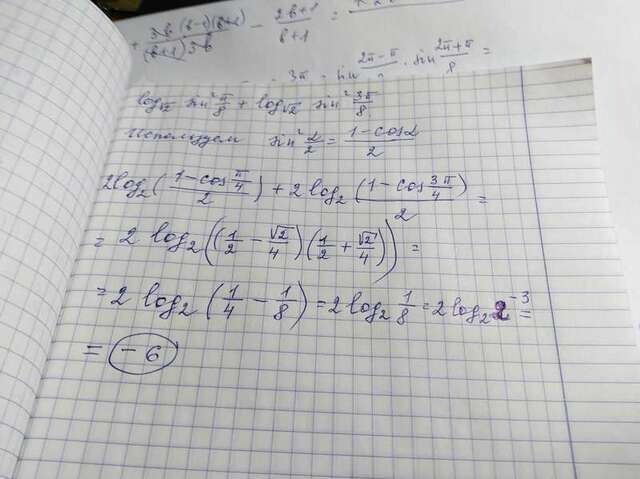 5b (b-1)(b+1) / (b+1) 5b - 2b+1 / b+1 =
sin (2π+π)/8 =
log_√2 sin² π/8 + log_√2 sin² 3π/8
Используем sin² α/2 = (1-cosα)/2
2log₂((1-cos π/4)/2) + 2 log₂ ((1-cos 3π/4)/2) =
= 2 log₂((1/2 - √2/4)(1/2 + √2/4)) =
= 2 log₂ (1/4 - 1/8) = 2 log₂ 1/8 = 2 log₂ 2⁻³ =
= -6